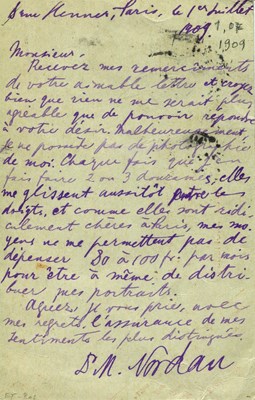 8 rue Henner, Paris, le 1er Juillet
1909
1.07
1909
Monsieur.
Recevez mes remerciements
de votre aimable lettre et croyez
bien que rien ne me serait plus
agréable que de pouvoir répondre
à votre désir. Malheureusement
je ne possède pas de photographie
de moi. Chaque fois que j'en
fais faire 2 ou 3 douzaines, elles
me glissent aussitôt entre les
doigts, et comme elles sont ridi-
culement chères à Paris, mes mo-
yens ne me permettent pas de
dépenser 80 à 100 fr. par mois
pour être à même de distri-
buer mes portraits.
Agréez, je vous prie, avec
mes regrets, l'assurance de mes
sentiments les plus distingués.
Dr M. Nordau